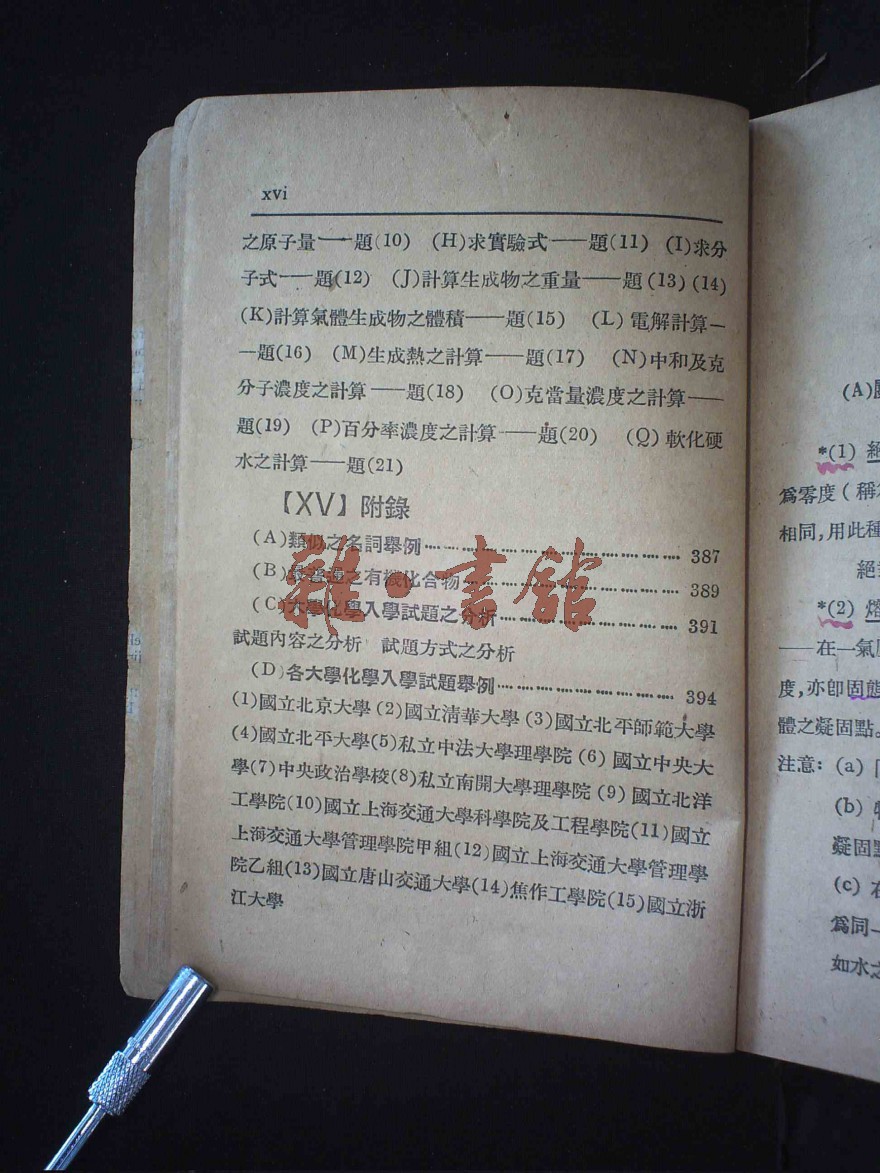 xvi
之原子量——題(10) (H)求實驗式——題(11) (I)求分
子式——題(12) (J)計算生成物之重量——題(13)(14)
(K)計算氣體生成物之體積——題(15) (L)電解計算—
—題(16) (M)生成熱之計算——題(17) (N)中和及克
分子濃度之計算——題(18) (O)克當量濃度之計算——
題(19) (P)百分率濃度之計算——題(20) (Q)軟化硬
水之計算——題(21)
【XV】附錄
(A)類似之名詞舉例……………………………… 387
(B)最普通之有機化合物……………………………… 389
(C)大學化學入學試題之分析……………………………… 391
試題內容之分析 試題方式之分析
(D)各大學化學入學試題舉例……………………………… 394
(1)國立北京大學(2)國立清華大學(3)國立北平師範大學
(4)國立北平大學(5)私立中法大學理學院(6)國立中央大
學(7)中央政治學校(8)私立南開大學理學院(9)國立北洋
工學院(10)國立上海交通大學科學院及工程學院(11)國立
上海交通大學管理學院甲組(12)國立上海交通大學管理學
院乙組(13)國立唐山交通大學(14)焦作工學院(15)國立浙
江大學
雜·書館
(A)
*(1) 絕
爲零度(稱
相同,用此種
絕
*(2) 熔
——在一氣
度,亦卽固態
體之凝固點。
注意:(a)
(b)
凝固點
(c) 在
爲同一
如水之